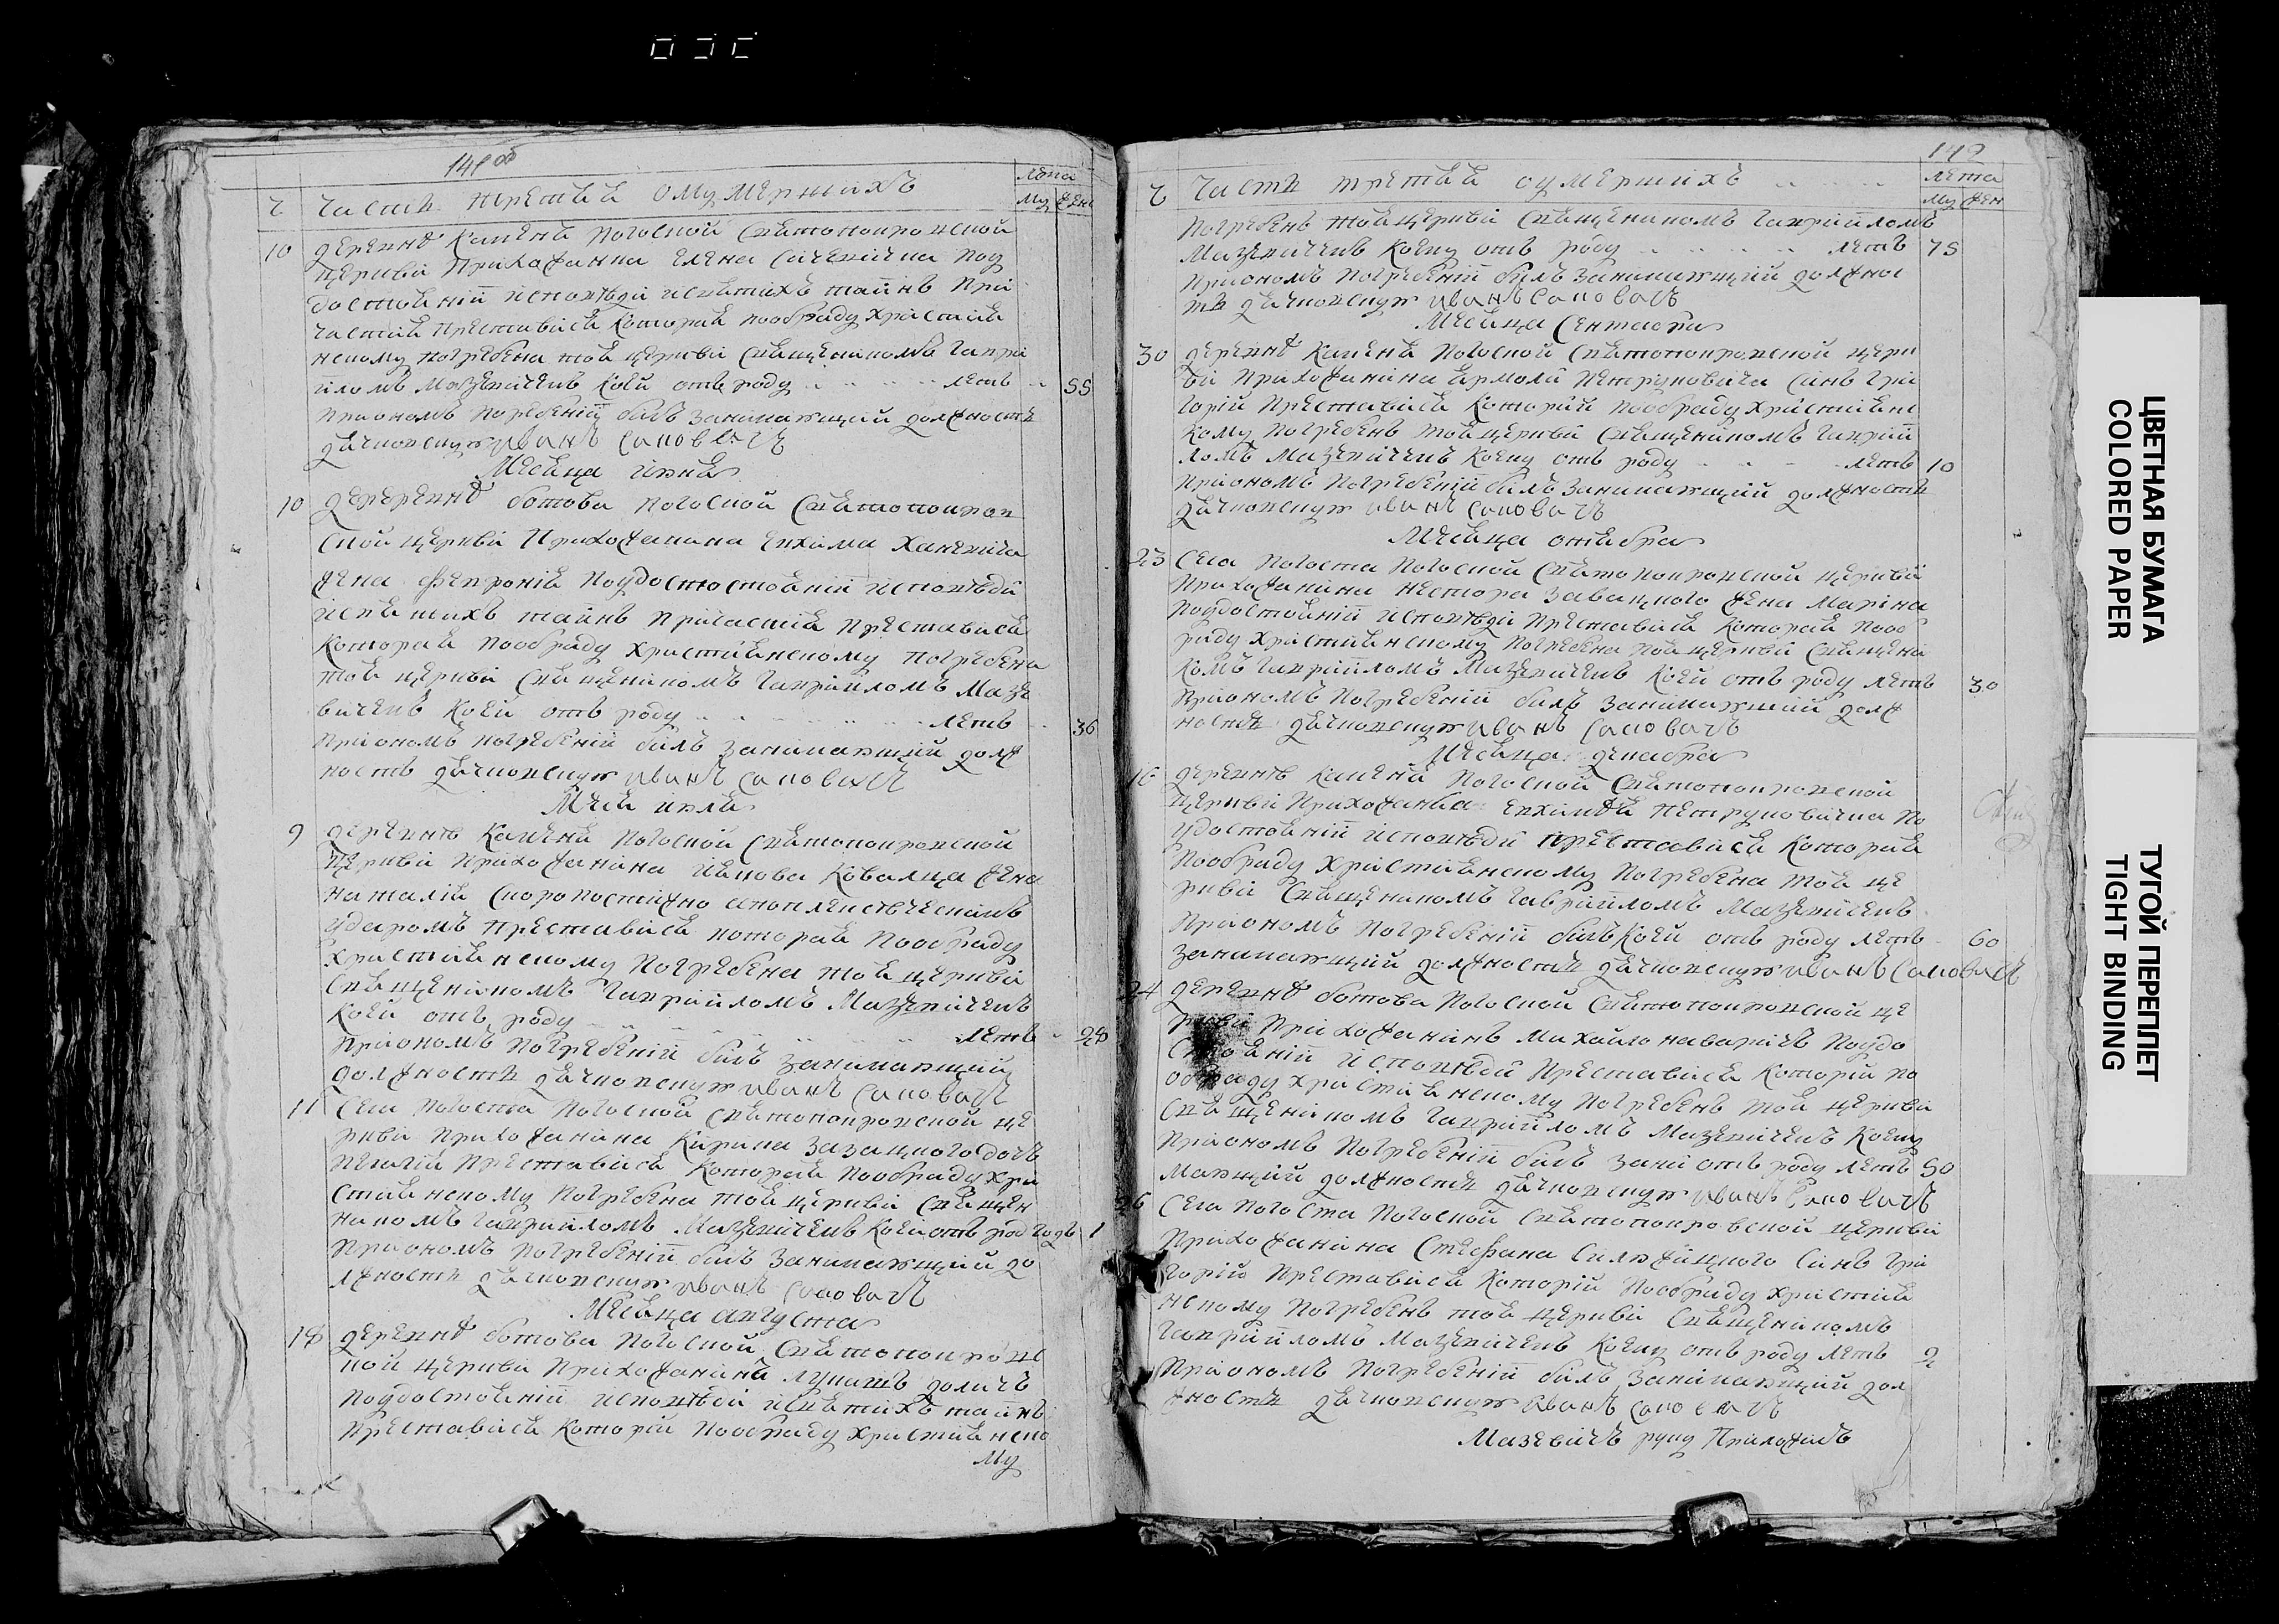 148 об
Часть третья о умерших
лета
му жен
10 деревне Каменя погоской святопокровской
церкви прихожанка Елена Сачевична поу
достоении исповеди и святых таин при
частия преставися которая пообряду христия
нскому погребена тоя церкви священиком Гаври
илом Мазевичем коей от роду лет 55
при оном погребении был занимающий должность
дячковскую Иван Саповач
Месяца июня
10 дереревне ботова погоской святопокров
ской церкви прихожанина Евхима Ханевича
жена Феврония поудостостоении исповеди
и святих таин причастия преставися
которая пообряду християнскому погребена
тоя церкви священиком Гавриилом Мазе
вичем коей от роду лет 36
при оном погребении был занимающий долж
ность дячковскую Иван Саповач
Меся июля
9 деревне Каменя погоской святопокровской
церкви прихожанина Якова Ковалца жена
Наталия скоропостижно апоплексическим
ударом преставися которая пообряду
християнскому погребена тоя церкви
священиком Гавриилом Мазевичем
коей от роду лет 28
при оном погребении был занимающий
должность дячковскую Иван Саповач
11 села погоста погоской святопокровской це
ркви прихожанина Кирила дочь
Пелагия преставися которая пообряду хри
стиянскому погребена тоя церкви священ
иком Гавриилом Мазевичем коей от род год 1
при оном погребении был занимающий до
лжность дячковскую Иван Саповач
Месяца августа
18 деревне ботова погоской святопокровс
кой церкви прихожанин Лукаш долич
поудостоении исповеди и святих таин
преставися которий пообряду християнско
му
149
Часть третья о умерших
лета
му жен
погребен тоя церкви священиком Гавриилом
Мазевичем коему от роду лет 75
при оном погребении был занимающий должнос
ть дячковскую Иван Саповач
Месяца сентября
30 деревне Каменя погоской святопокровской церк
ви прихожанина Ярмоли Петруковича син Гри
горий преставися которий пообряду християнс
кому погребен тоя церкви священиком Гаврии
лом Мазевичем коему от роду лет 10
при оном погребении был занимающий должность
дячковскую Иван Саповач
Месяца октября
23 села погоста погоской святопокровской церкви
прихожанина Нестора Завацкого жена Марина
поудостоении исповеди преставися которая пооб
ряду християнскому погребена тоя церкви священи
ком Гавриилом Мазевичем коей от роду лет 30
при оном погребении был занимающий долж
ность дячковскую Иван Саповач
Месяца декабря
16 деревне Каменя погоской святопокровской
церкви прихожанка Евхимия Петруковична по
удостоении исповеди преставися которая
пообряду християнскому погребена тоя це
ркви священиком Гавриилом Мазевичем
при оном погребении был коей от роду лет 60
занимающий должность дячковскую Иван Саповач
24 деревне ботова погоской святопокровской це
ркви прихожанин Михайло Наварич поудо
стоении исповеди преставися которий по
обряду християнскому погребен тоя церкви
священиком Гавриилом Мазевичем коему
при оном погребении был зани от роду лет 50
мающий должность дячковскую Иван Саповач
26 села погоста погоской святопокровской церкви
прихожанина Стефана син Гри
горий преставися которий пообряду християн
нскому погребен тоя церкви священиком
Гавриилом Мазевичем коему от роду лет 2
при оном погребении был занимающий дол
жность дячковскую Иван Саповач
Мазевич руку приложил
ЦВЕТНАЯ БУМАГА
COLORED PAPER
ТУГОЙ ПЕРЕПЛЕТ
TIGHT BINDING